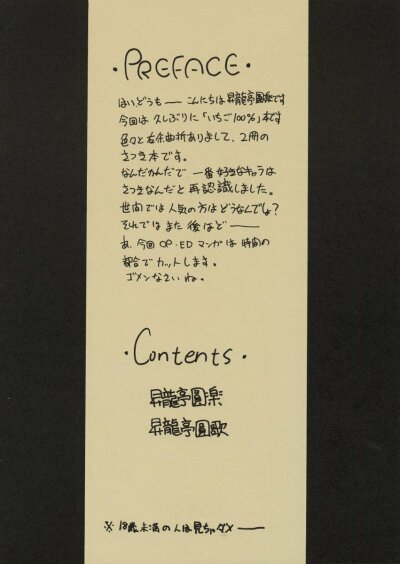 ・PREFACE・
はいどうも── こんにちは昇龍亭圓楽です
今回は久しぶりに「いちご100%」本です
色々と右余曲折ありまして、2冊の
さつき本です。
なんだかんだで、一番好きなキャラは
さつきなんだと再認識しました。
世間では人気の方はどうなんでしょ?
それではまた後ほど──
あ、今回OP・EDマンガは時間の
都合でカットします。
ゴメンなさいね。
・Contents・
昇龍亭圓楽
昇龍亭圓歌
※ 18歳未満の人は見ちゃダメ──